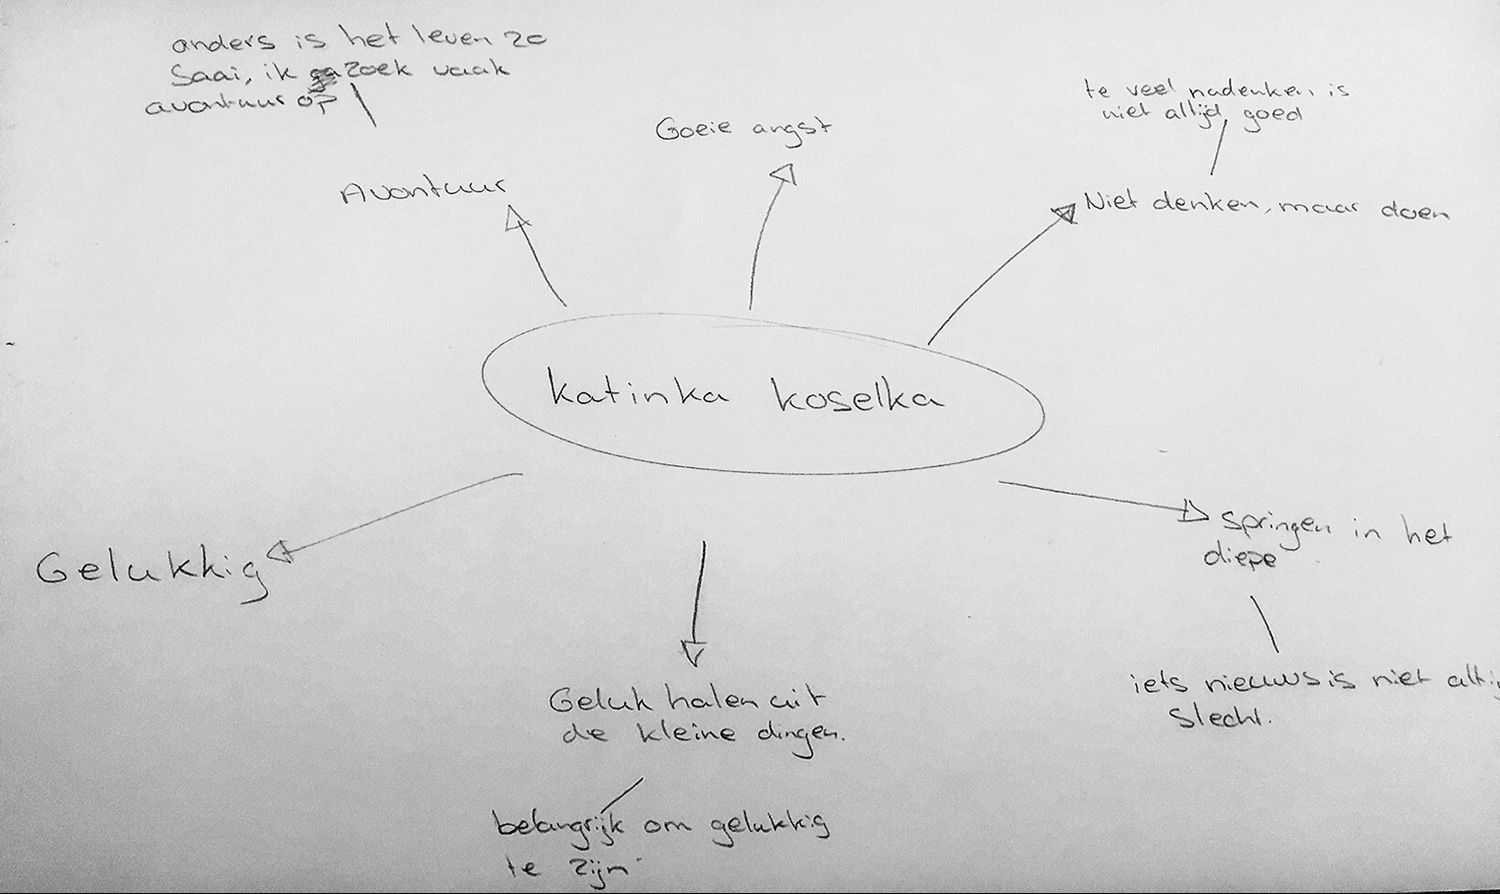 anders is het leven zo
saai, ik zoek vaak
avontuur op
Avontuur
Goeie angst
te veel nadenken is
niet altijd goed
Niet denken, maar doen
katinka koselka
Gelukkig
springen in het
diepe
iets nieuws is niet altij
slecht.
Geluk halen uit
de kleine dingen.
belangrijk om gelukkig
te zijn